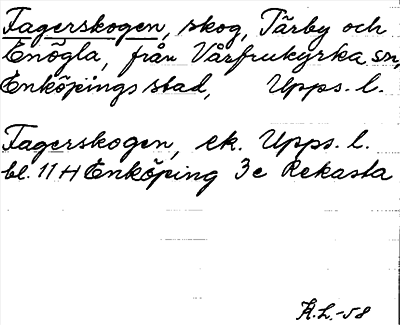 Fagerskogen, skog, Tärby och
Enögla, från Vårfrukyrka sn,
Enköpings stad, Upps. l.
Fagerskogen, ek. Upps. l.
bl. 11 H Enköping 3 e Rekasta
Å.L.-58